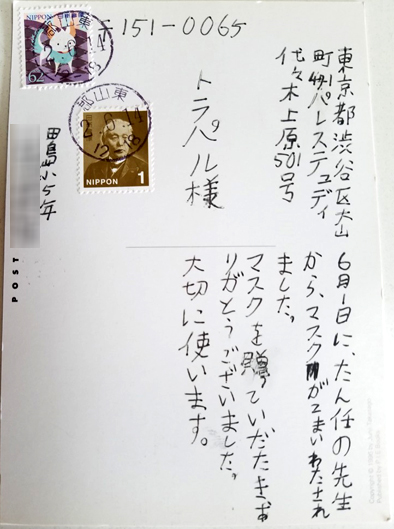 〒151-0065
東京都渋谷区大山
町 パレステュディ
代々木上原
501号
トラパル様
6月1日に、たん任の先生
から、マスクが2まいわたされ
ました。
マスクを贈っていだたきあ
りがとうございました。
大切に使います。
田島小5年
NIPPON
62
郡山東
郡山東
NIPPON 1
POST